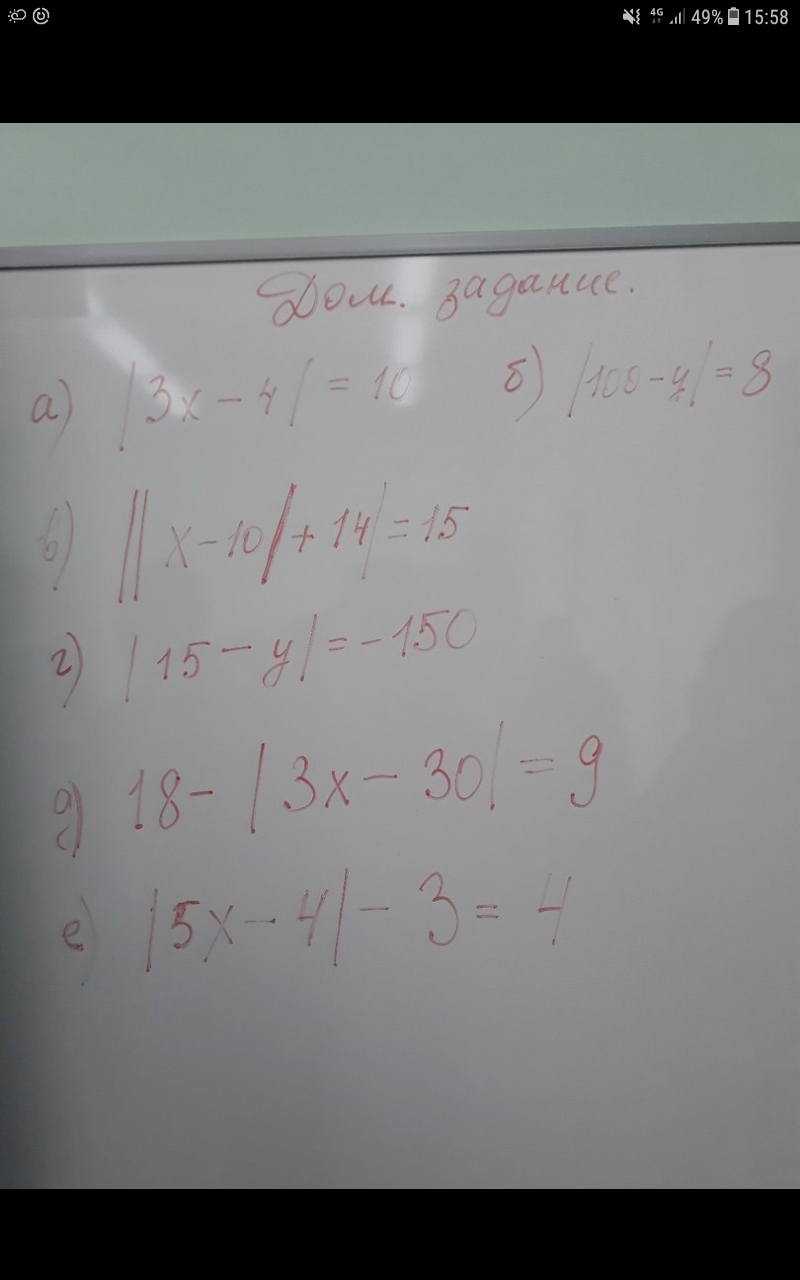 4G 49% 15:58
Дом. задание.
а) |3x - 4| = 10 б) |100 - y| = 8
в) ||x - 10| + 14| = 15
г) |15 - y| = -150
д) 18 - |3x - 30| = 9
е) |5x - 4| - 3 = 4